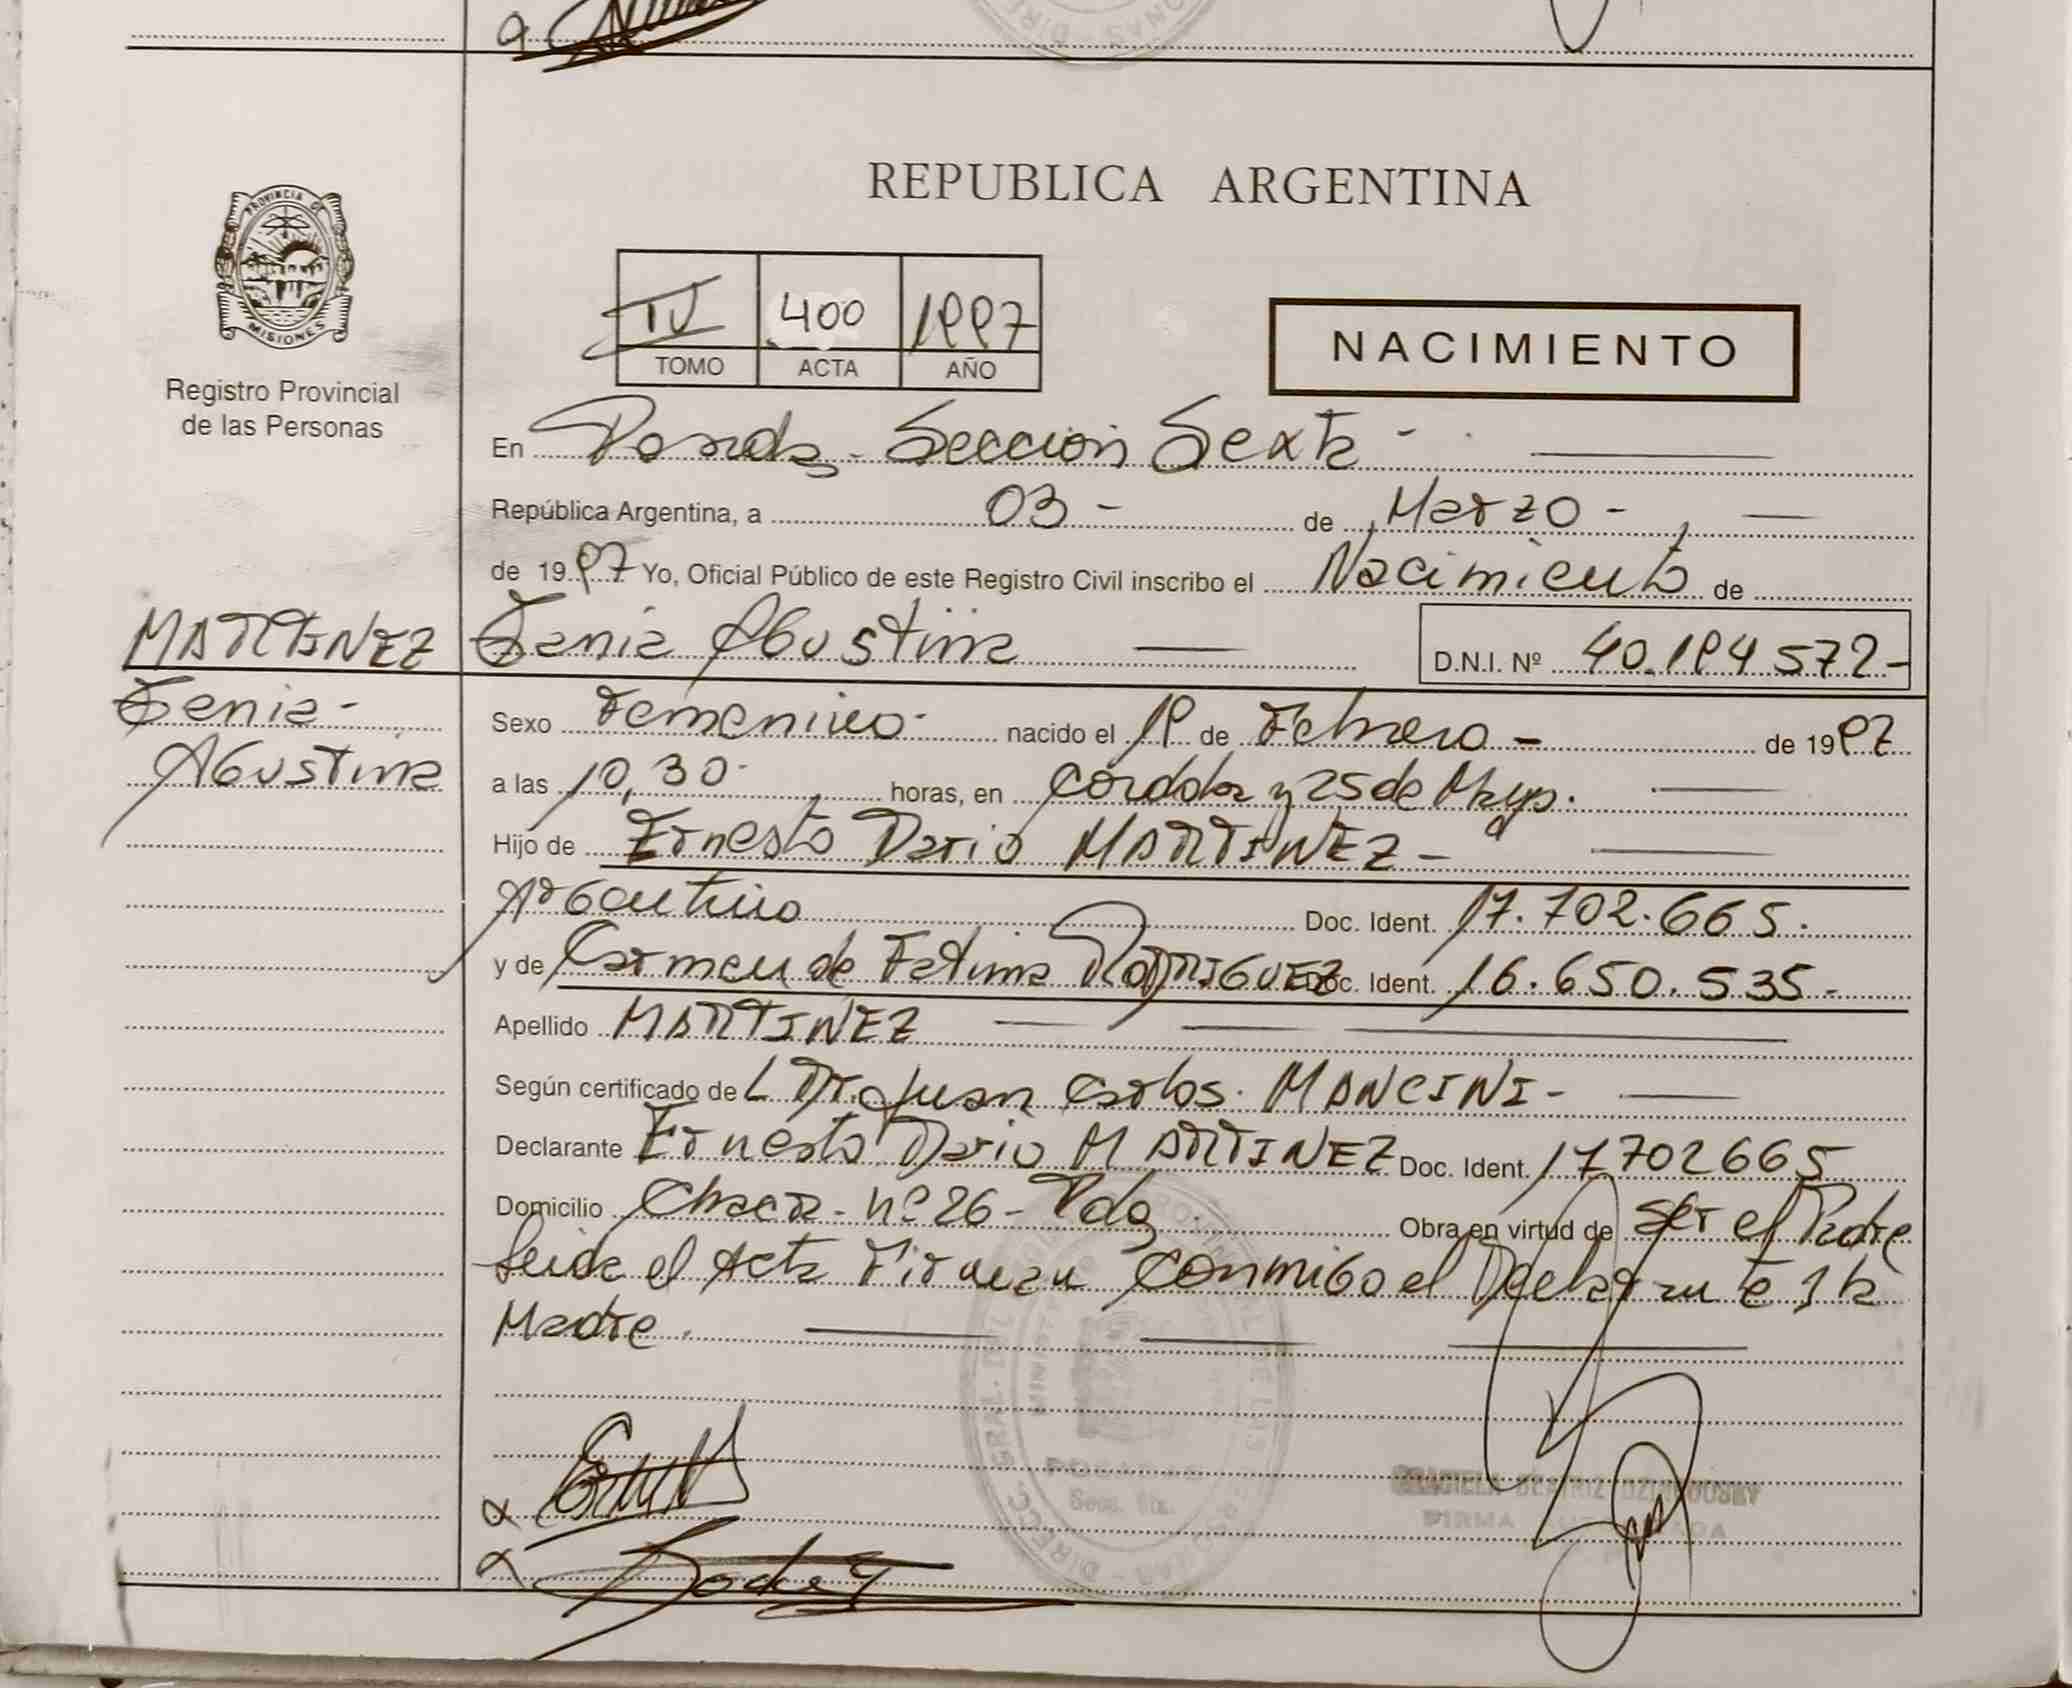 PROVINCIA DE
MISIONES
Registro Provincial
de las Personas
REPUBLICA ARGENTINA
IV 400 1997
TOMO ACTA AÑO
NACIMIENTO
En Posadas - Sección Sexta -
República Argentina, a 03 - de Marzo -
de 1997 Yo, Oficial Público de este Registro Civil inscribo el Nacimiento de
MARTINEZ Tania Agustina D.N.I. Nº 40.194 572-
Tania -
Agustina
Sexo Femenino - nacido el 19 de Febrero - de 1997
a las 10,30 - horas, en Córdoba y 25 de Mayo.
Hijo de Ernesto Dario MARTINEZ -
Argentino Doc. Ident. 17.702.665.
y de Carmen de Fatima RODRIGUEZ Doc. Ident. 16.650.535-
Apellido MARTINEZ
Según certificado de L Dr. Juan Carlos. MANCINI -
Declarante Ernesto Dario MARTINEZ Doc. Ident. 17702665
Domicilio Chacra - nº 26 - Pdas. Obra en virtud de ser el Padre
Leida el Acta Firman conmigo el Declarante y la
Madre.
POSADAS
Secc. 6ta.
BEATRIZ
FIRMA AUTORIZADA